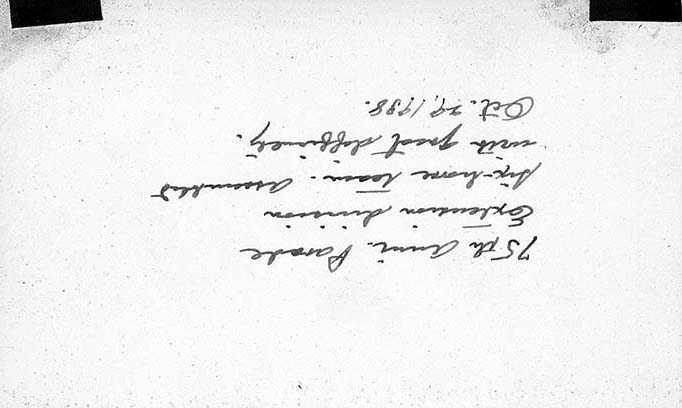 75th Anni. Parade
Extension division
six-horse team. Assembled
with great difficulty.
Oct. 29, 1938.